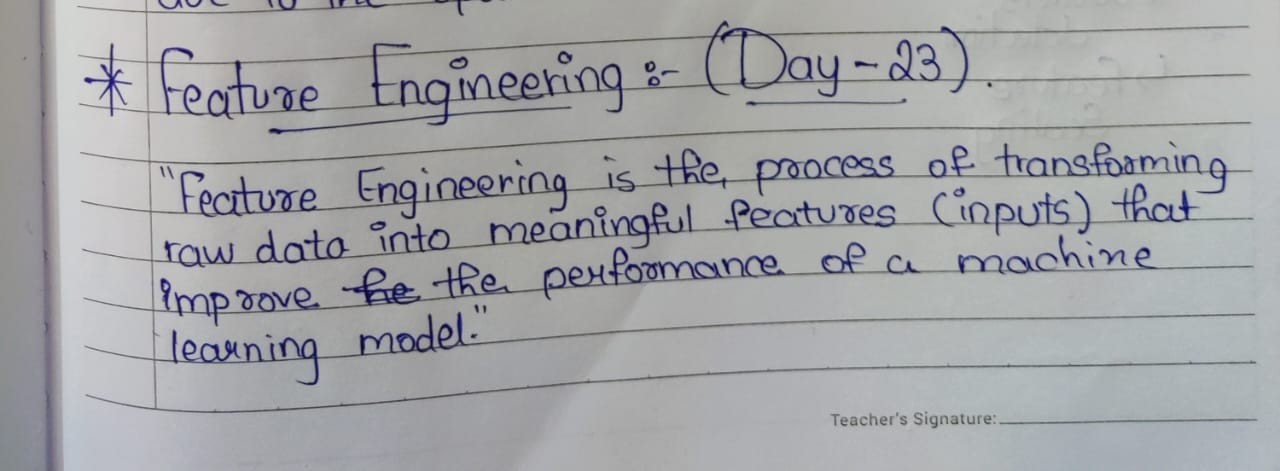 * Feature Engineering :- (Day-23).
"Feature Engineering is the process of transforming
raw data into meaningful features (inputs) that
improve the the performance of a machine
learning model."
Teacher's Signature: